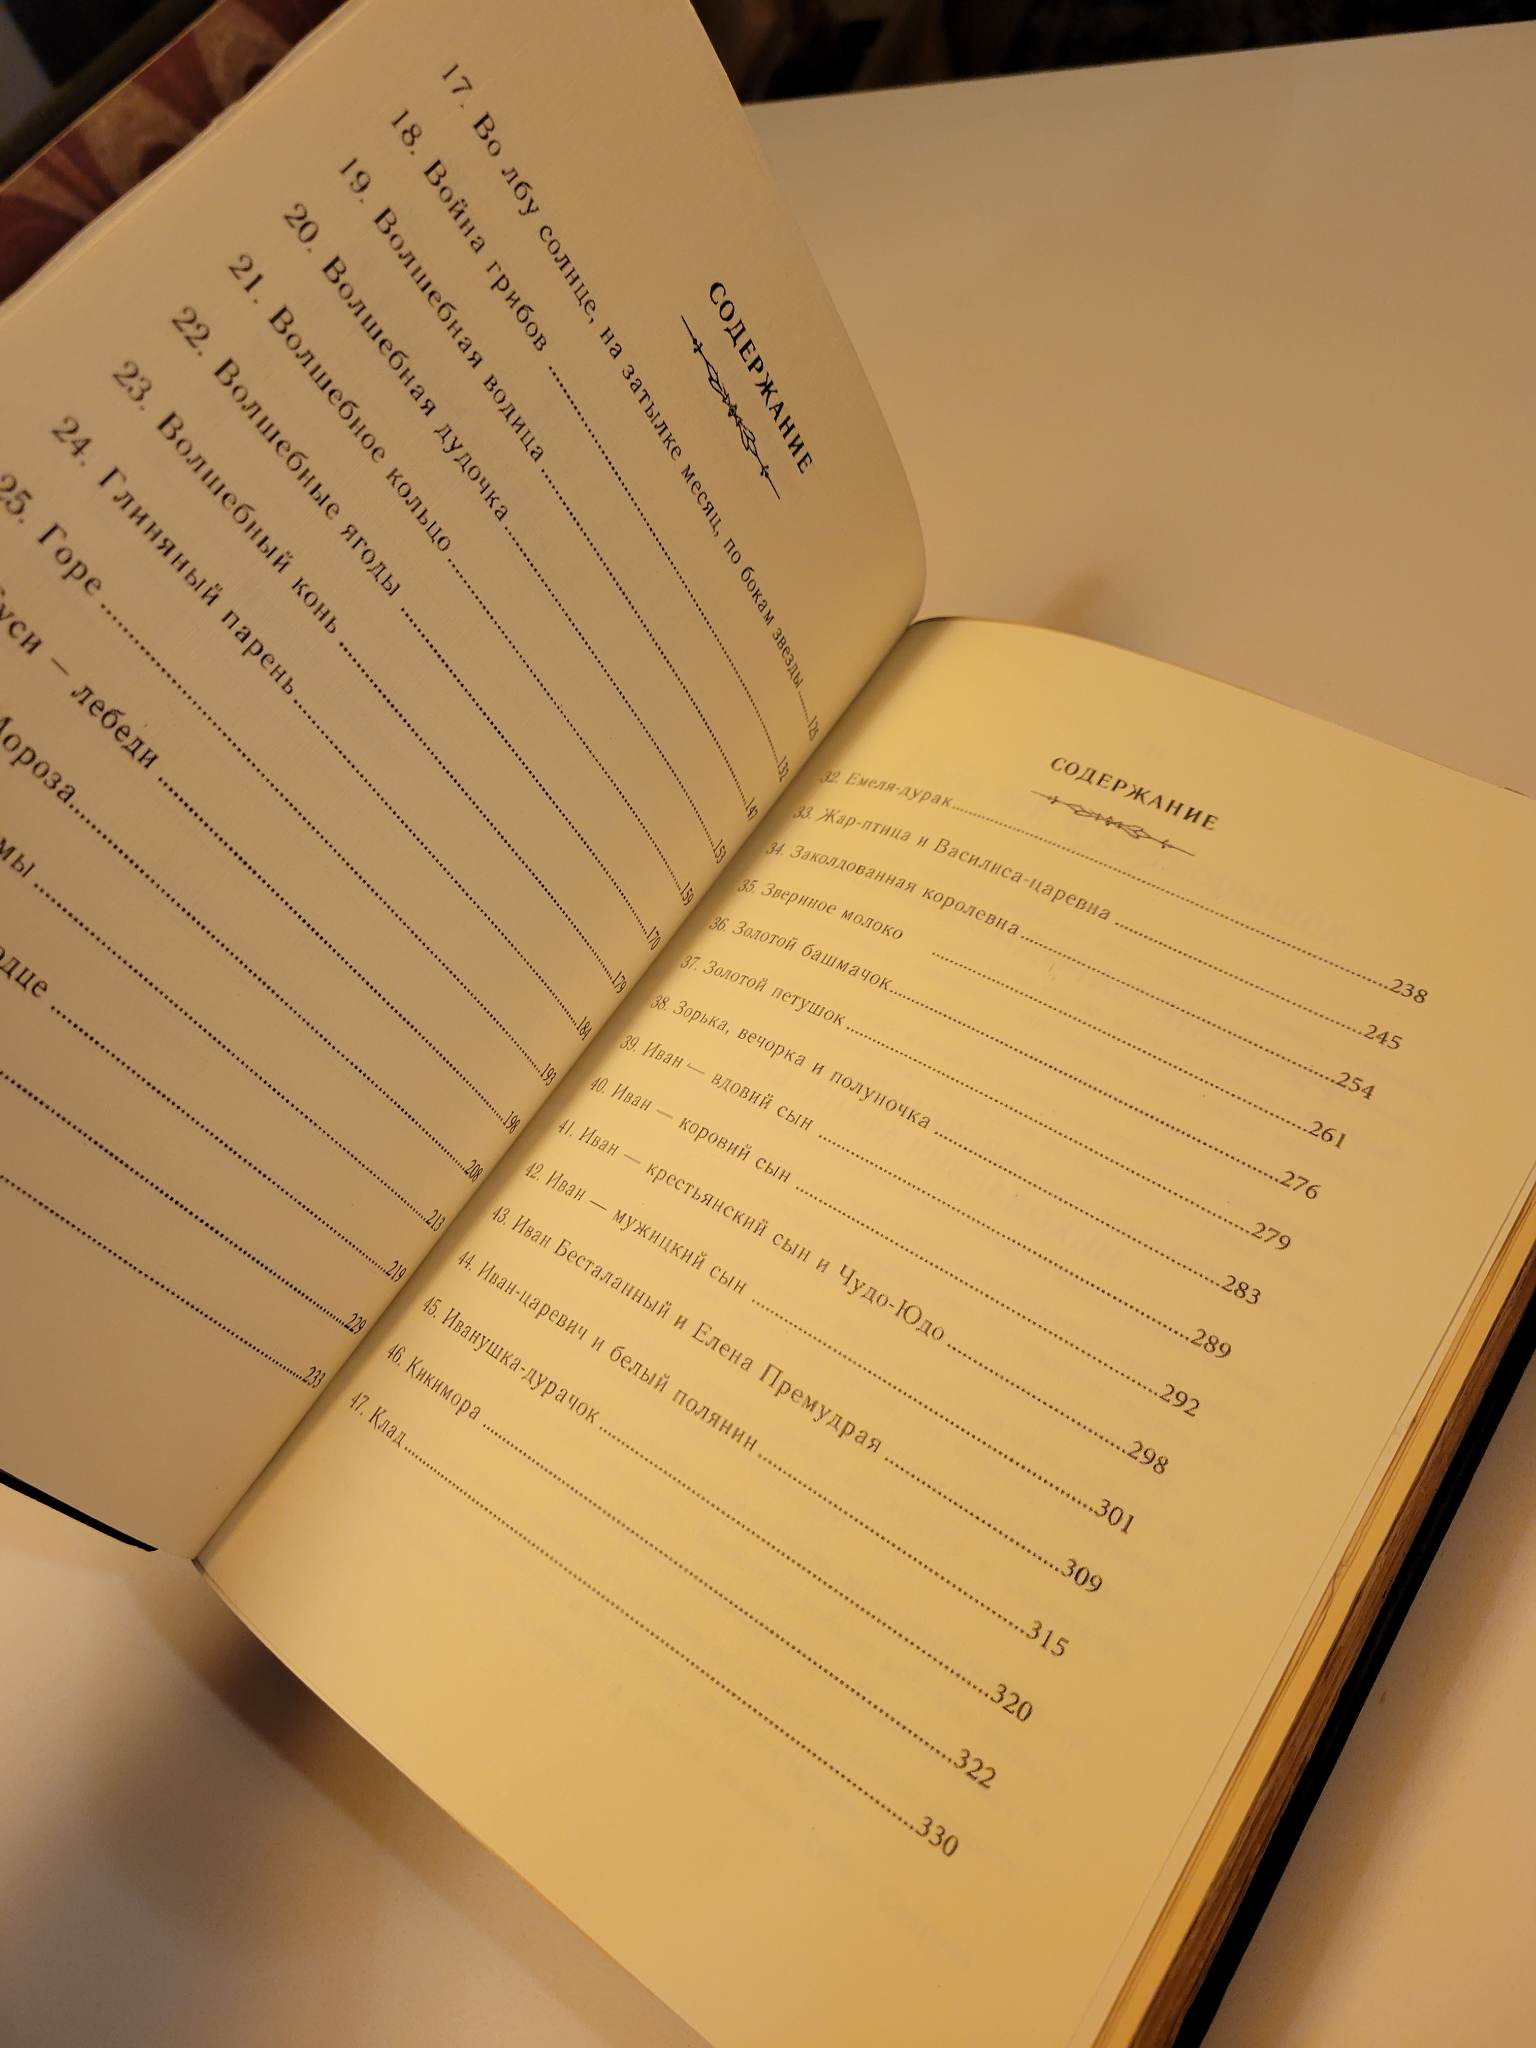 СОДЕРЖАНИЕ
17. Во лбу солнце, на затылке месяц, по бокам звезды ......125
18. Война грибов ......132
19. Волшебная водица ......147
20. Волшебная дудочка ......153
21. Волшебное кольцо ......159
22. Волшебные ягоды ......170
23. Волшебный конь ......179
24. Глиняный парень ......184
25. Горе ......193
Гуси — лебеди ......198
Мороза ......208
мы ......213
одце ......219
......229
......233
СОДЕРЖАНИЕ
32. Емеля-дурак ......238
33. Жар-птица и Василиса-царевна ......245
34. Заколдованная королевна ......254
35. Звериное молоко ......261
36. Золотой башмачок ......276
37. Золотой петушок ......279
38. Зорька, вечорка и полуночка ......283
39. Иван — вдовий сын ......289
40. Иван — коровий сын ......292
41. Иван — крестьянский сын и Чудо-Юдо ......298
42. Иван — мужицкий сын ......301
43. Иван Бесталанный и Елена Премудрая ......309
44. Иван-царевич и белый полянин ......315
45. Иванушка-дурачок ......320
46. Кикимора ......322
47. Клад ......330